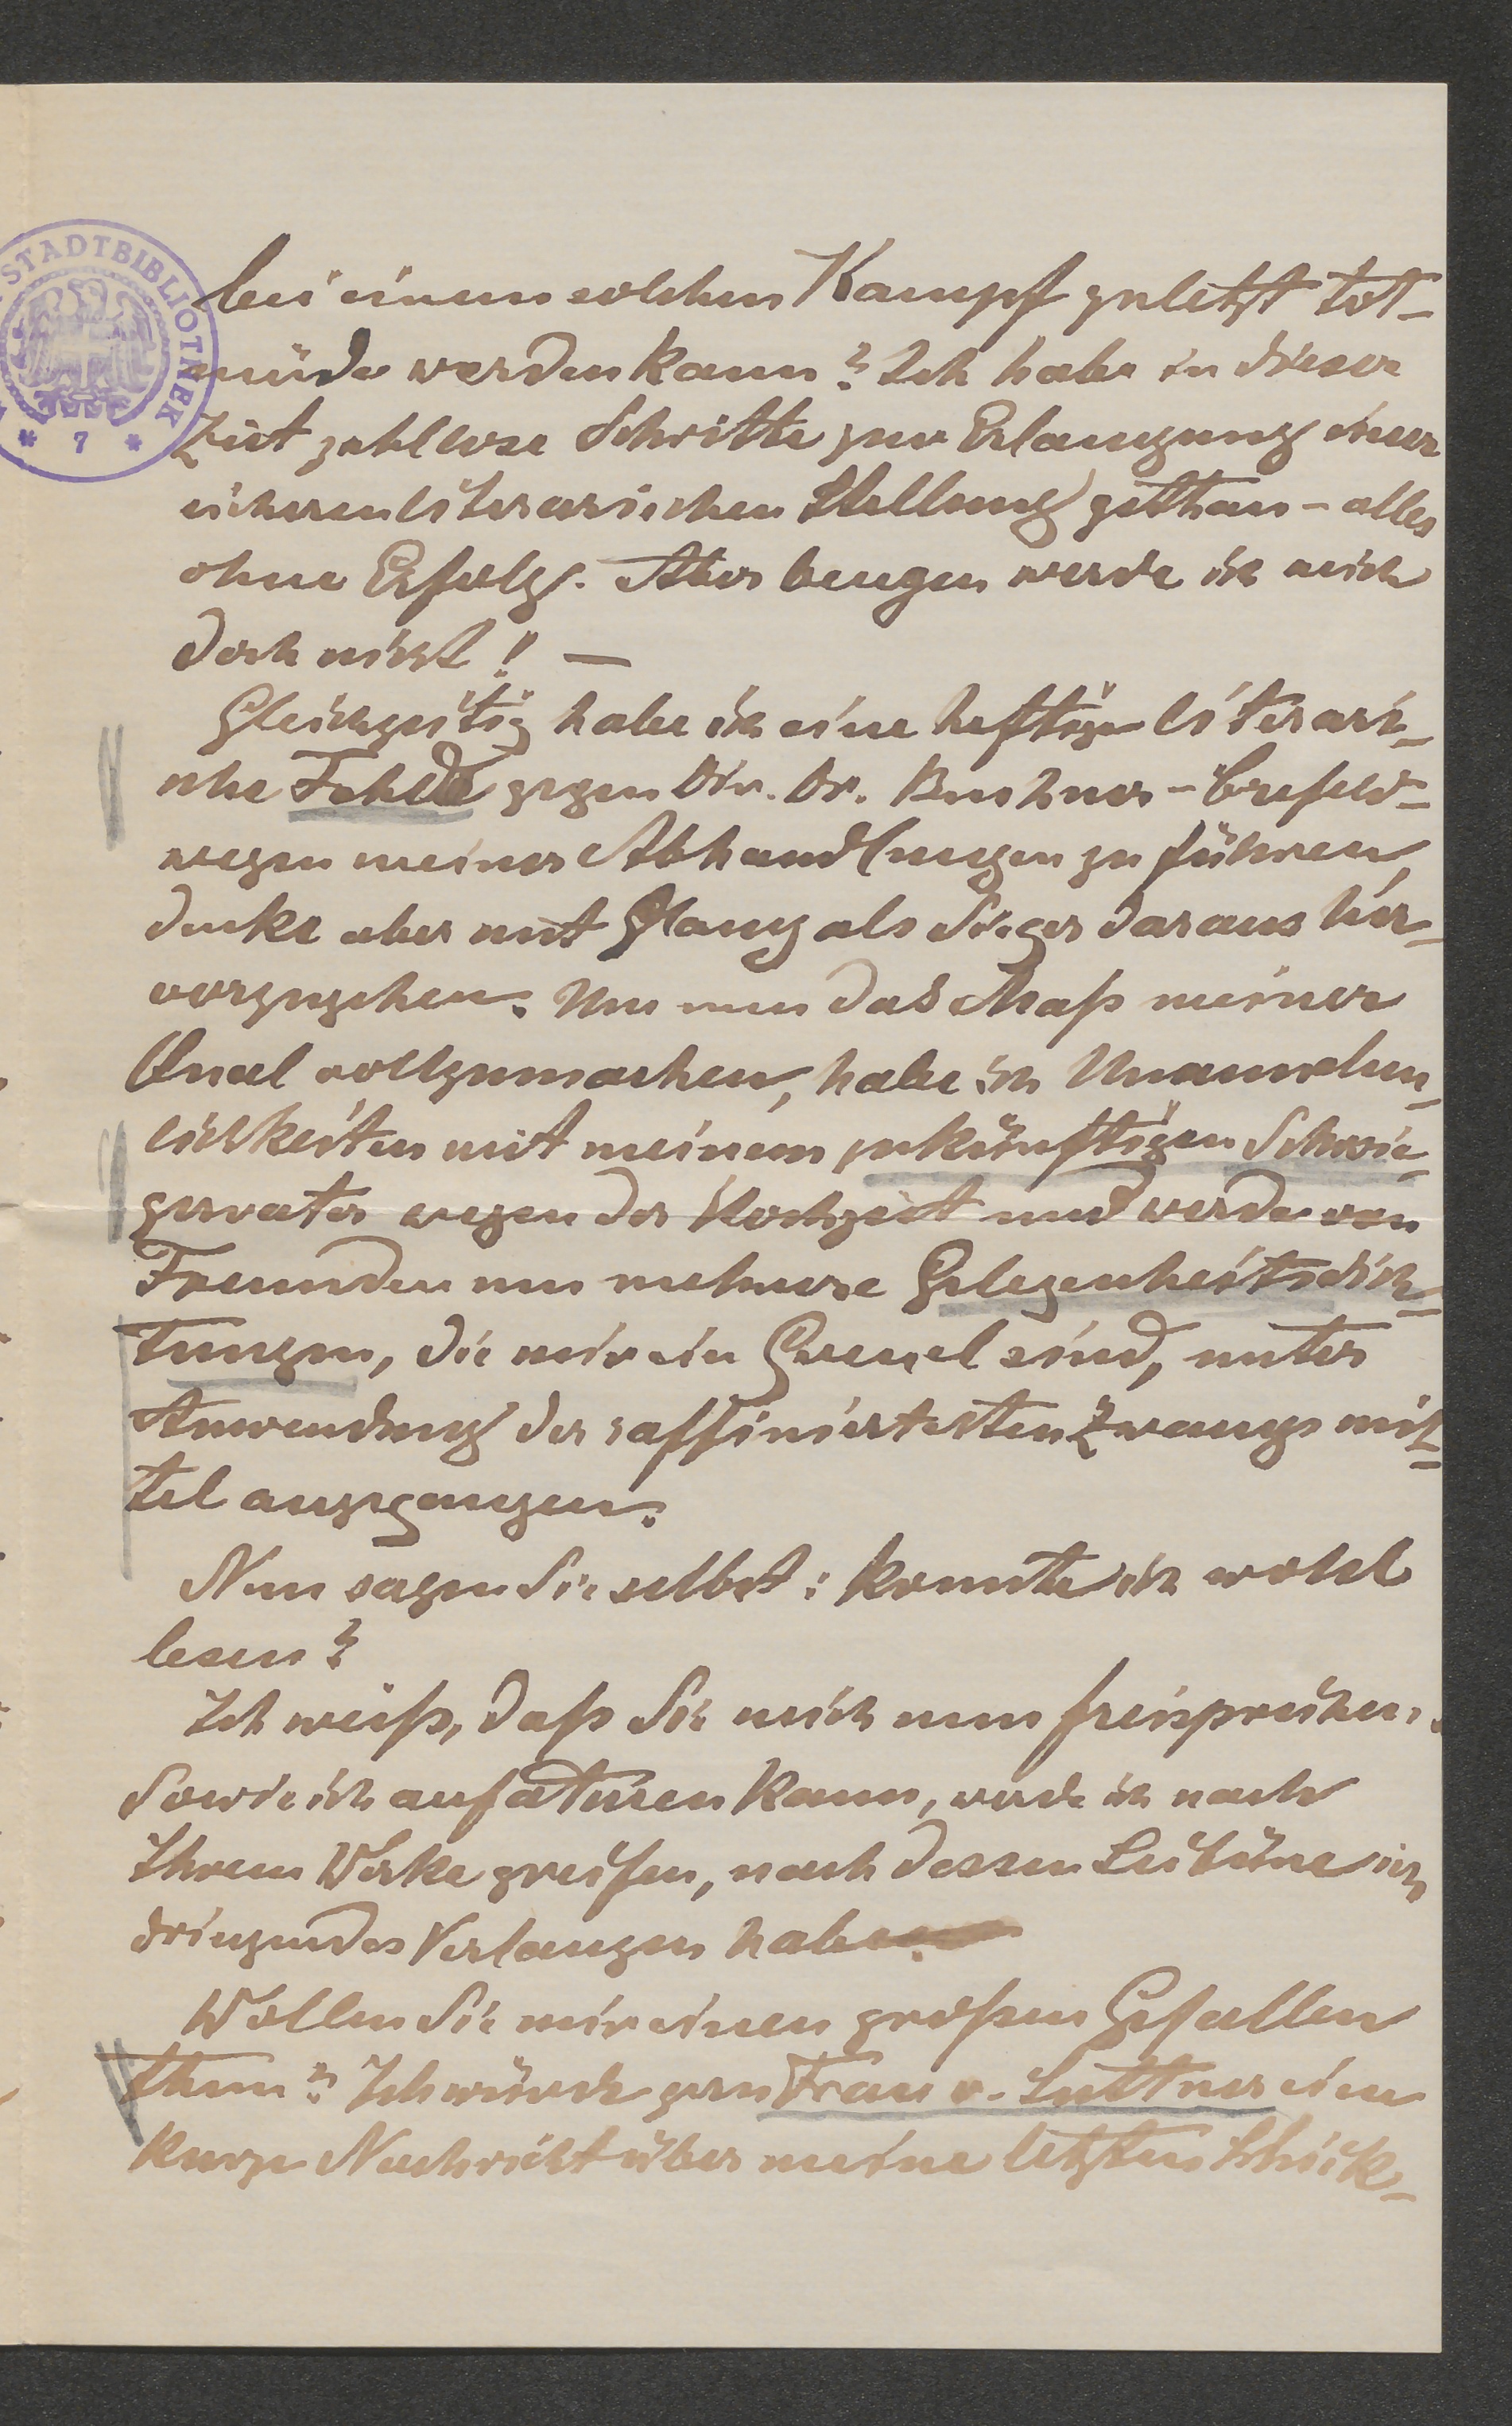 STADTBIBLIOTHEK
* 7 *
bei einem solchen Kampf zuletzt tot-
müde werden kann? Ich habe in dieser
Zeit zahllose Schritte zur Erlangung einer
sicheren literarischen Stellung gethan - alles
ohne Erfolg. Aber beugen werde ich mich
doch nicht! —
Gleichzeitig habe ich eine heftige literari-
sche Fehde gegen Dir. Dr. Buchner - Crefeld -
wegen meiner Abhandlungen zu führen,
denke aber mit Glanz als Sieger daraus her-
vorzugehen. Um nun das Maß meiner
Qual vollzumachen, habe ich Unannehm-
lichkeiten mit meinem zukünftigen Schwie-
gervater wegen der Hochzeit und werde von
Freunden um mehrere Gelegenheitsdich-
tungen, die mir ein Greuel sind, unter
Anwendung der raffiniertesten Zwangsmit-
tel angegangen.
Nun sagen Sie selbst: konnte ich wohl
lesen?
Ich weiß, daß Sie mich nun freisprechen.
Sowie ich aufatmen kann, werde ich nach
Ihrem Werke greifen, nach dessen Lektüre ich
dringendes Verlangen habe.
Wollen Sie mir einen großen Gefallen
thun? Ich würde gern Frau v. Suttner eine
kurze Nachricht über meine letzten Schick-